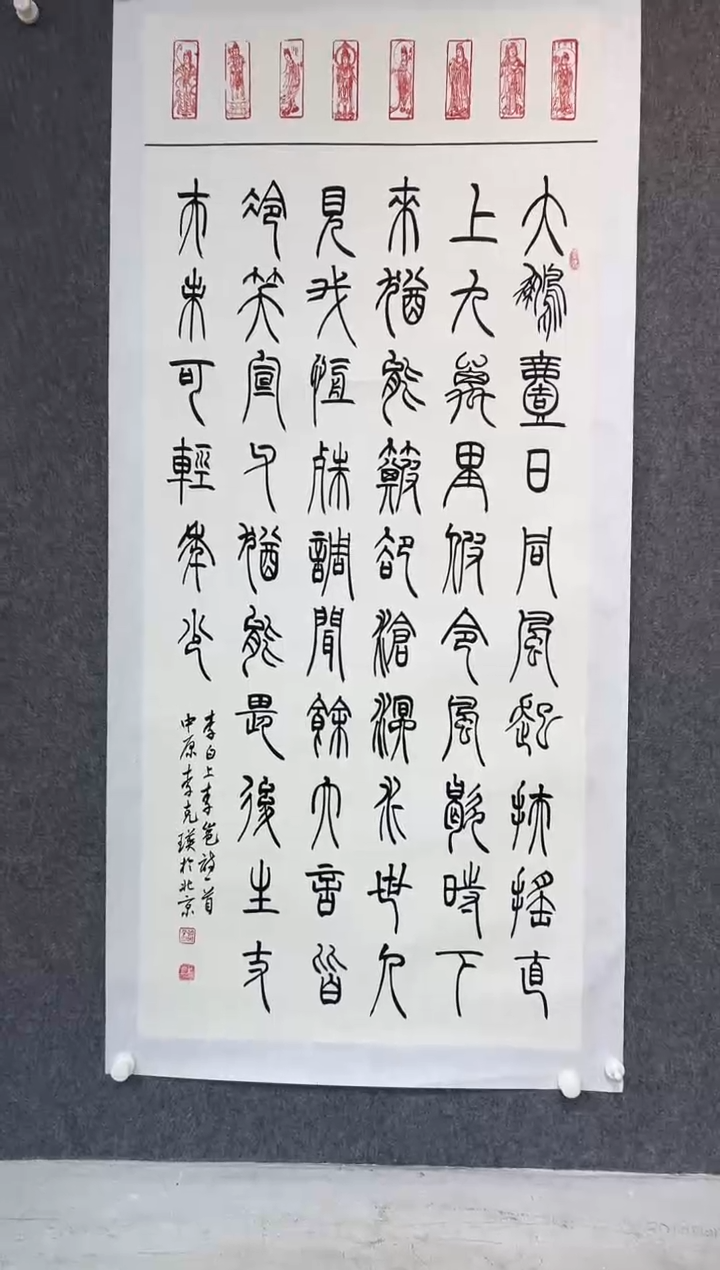 大鵬壹日同風起扶搖直
上九萬里假令風歇時下
來猶能簸卻滄溟水世人
見我恆殊調聞餘大言皆
冷笑宣父猶能畏後生丈
夫未可輕年少
李白上李邕詩一首
中原李克瑛於北京